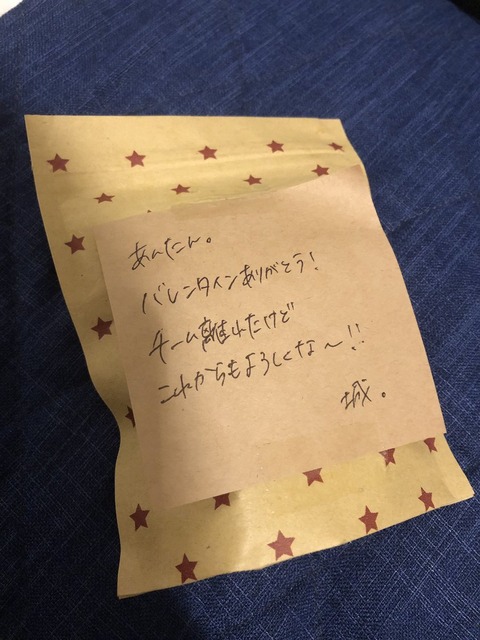 あんたん。
バレンタインありがとう!
チーム離れたけど
これからもよろしくな〜!!
城。